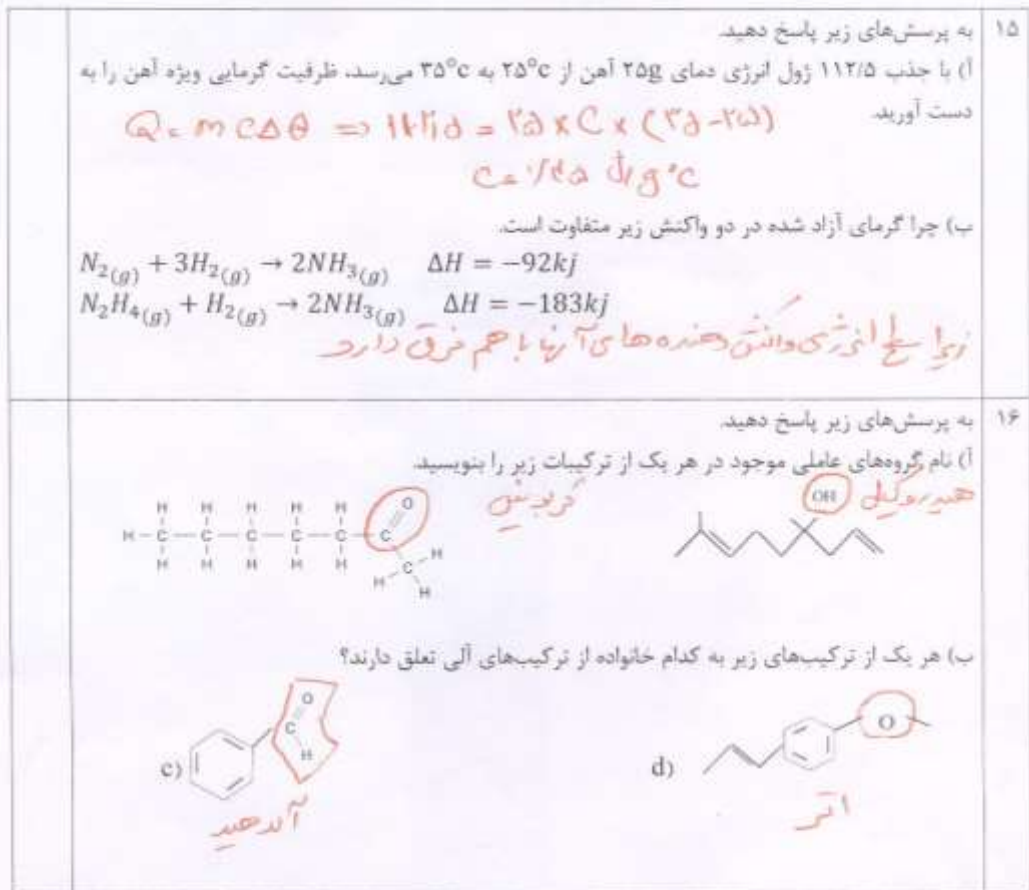 ۱۵ به پرسش‌های زیر پاسخ دهید.
آ) با جذب ۱۱۲/۵ ژول انرژی دمای ۲۵g آهن از ۲۵°c به ۳۵°c می‌رسد، ظرفیت گرمایی ویژه آهن را به
دست آورید.
Q = mCΔθ => ۱۱۲/۵ = ۲۵ × C × (۳۵-۲۵)
C = ۰/۴۵ J/g°C
ب) چرا گرمای آزاد شده در دو واکنش زیر متفاوت است.
N₂(g) + 3H₂(g) → 2NH₃(g) ΔH = −92kj
N₂H₄(g) + H₂(g) → 2NH₃(g) ΔH = −183kj
زیرا سطح انرژی واکنش دهنده های آنها با هم فرق دارد
۱۶ به پرسش‌های زیر پاسخ دهید.
آ) نام گروه‌های عاملی موجود در هر یک از ترکیبات زیر را بنویسید.
هیدروکسیل
کربونیل
OH
H H H H H O
H-C-C-C-C-C-C
H H H H H C-H
H H
ب) هر یک از ترکیب‌های زیر به کدام خانواده از ترکیب‌های آلی تعلق دارند؟
d) O
اتر
c) O
C
H
آلدهید